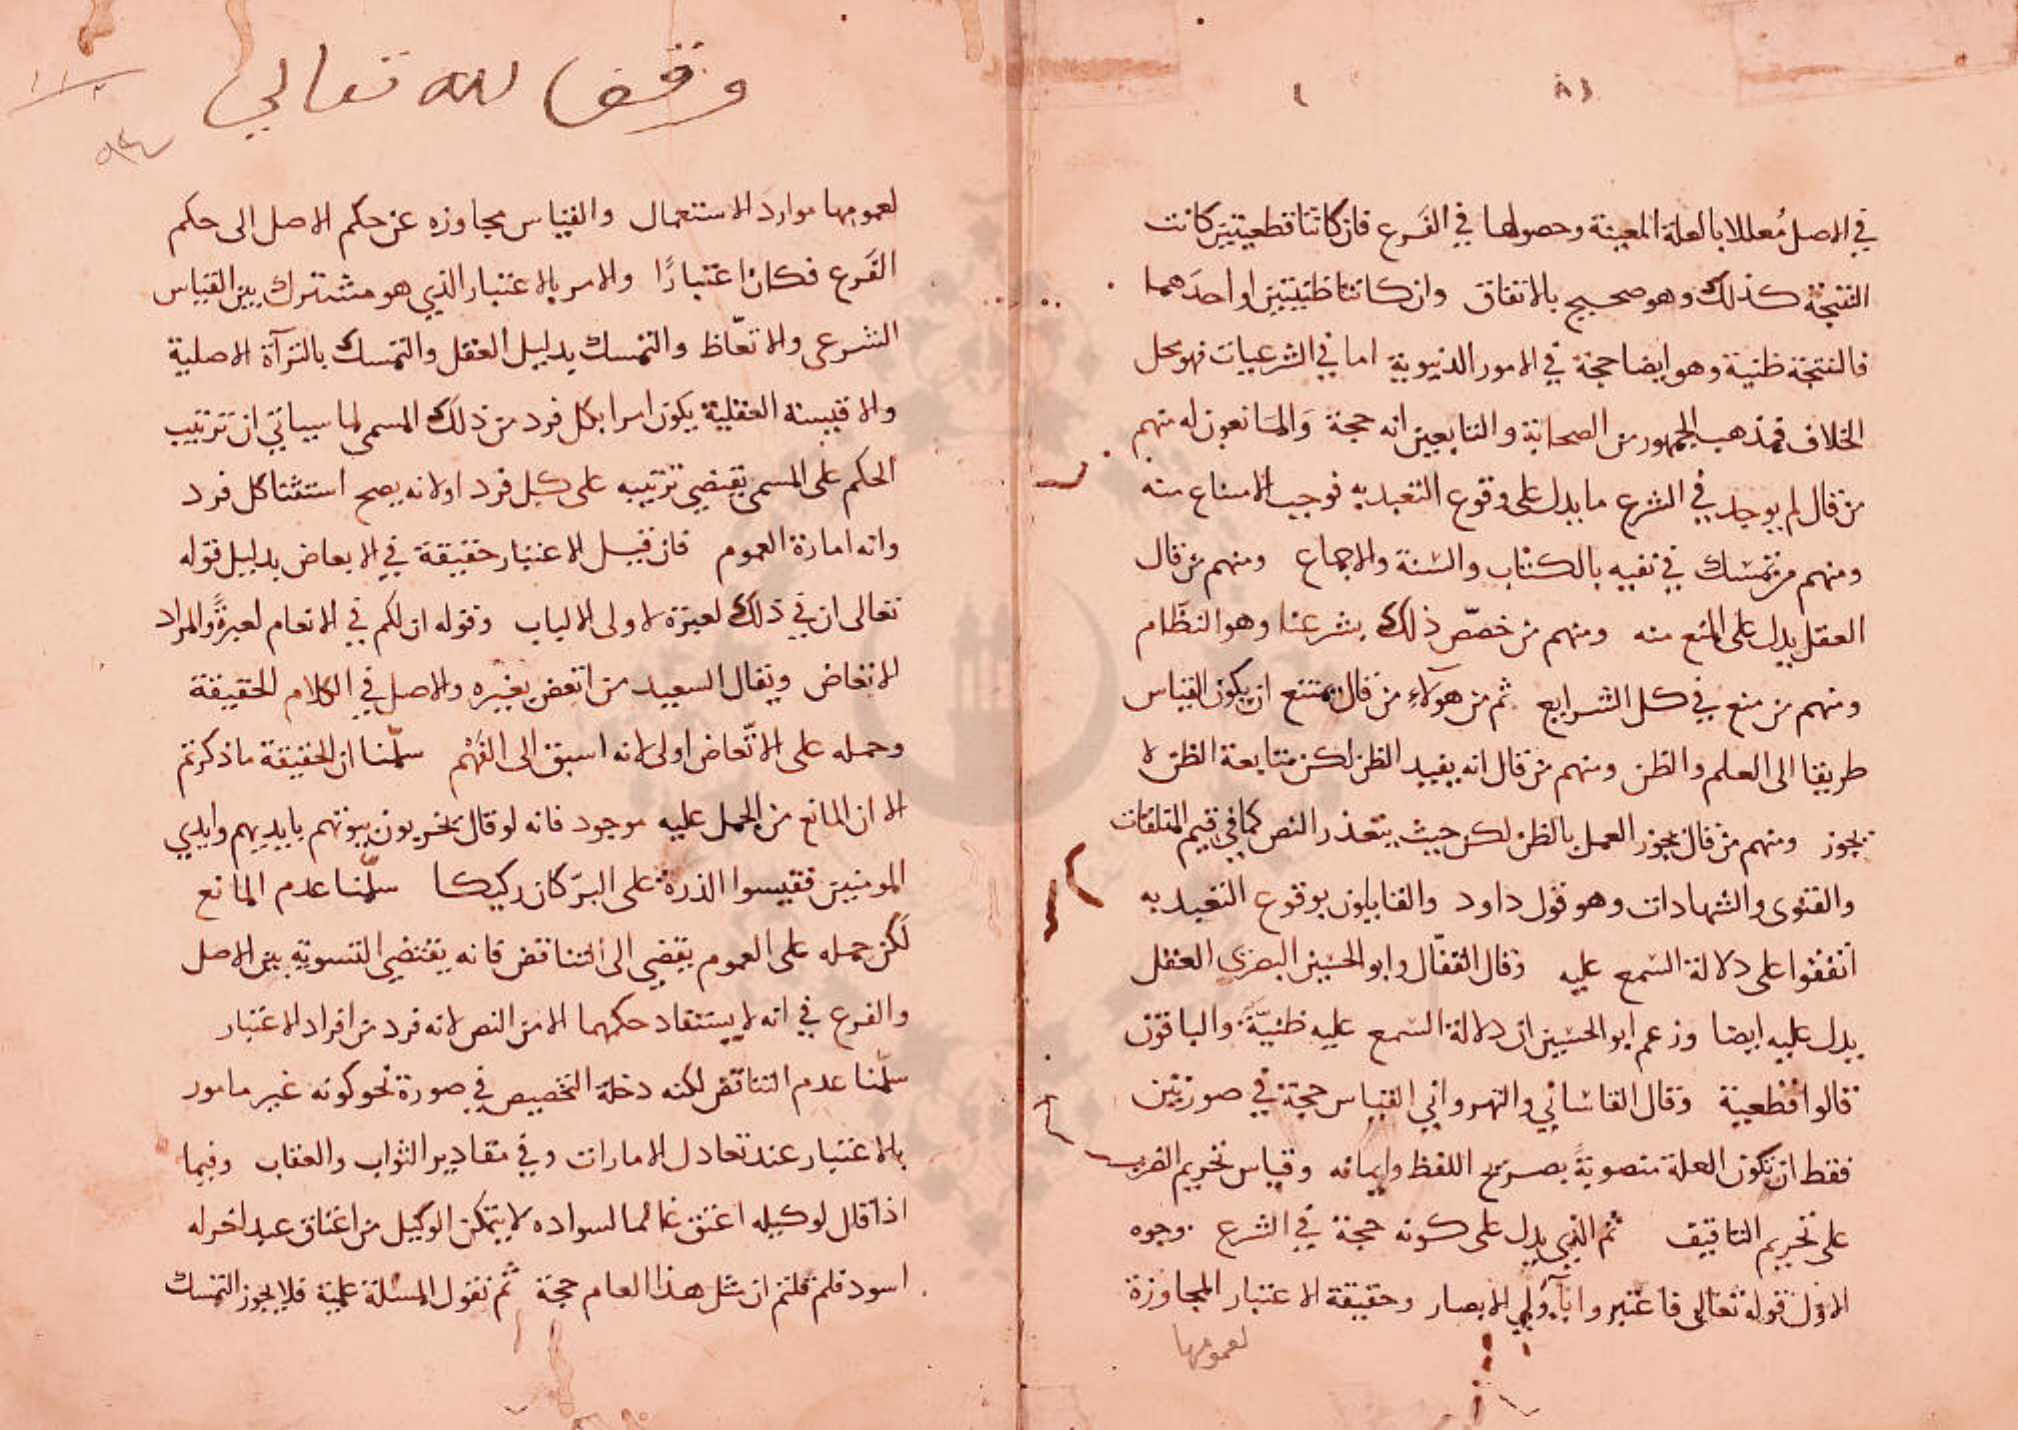 في الاصل مُعللا بالعلة المعينة وحصولها في الفَرع فان كانتا قطعيتين كانت
النتيجة كذلك وهو صحيح بالاتفاق وان كانتا ظنيتين او احدَهما
فالنتيجة ظنية وهو ايضا حجة في الامور الدنيوية اما في الشرعيات فهو محل
الخلاف فمذهب الجمهور من الصحابة والتابعين انه حجة وَالمَانعون له منهم
من قال لم يوجد في الشرع ما يدل على وقوع التعبد به فوجب الامتناع منه
ومنهم من تمسّك في نفيه بالكتاب والسّنة والاجماع ومنهم من قال
العقل يدل على المنع منه ومنهم من خصّص ذلك بشرعنا وهو النظّام
ومنهم من منع في كل الشرايع ثم من هولآءِ من قال يمتنع ان يكون القياس
طريقا الى العلم والظن ومنهم من قال انه يفيد الظن لكن متابعة الظن لا
يجوز ومنهم من قال يجوز العمل بالظن لكن حيث يتعذر النص كما في قيم المتلفات
والفتوى والشهادات وهو قول داود والقايلون بوقوع التعبد به
اتفقوا على دلالة السّمع عليه وقال القفّال وابو الحسَين البصري العقل
يدل عليه ايضا وزعم ابو الحسَين ان دلالة السّمع عليه ظنيّةَ والباقون
قالوا قطعية وقال القاسَاني والنهرواني القياس حجة في صورتين
فقط ان تكون العلة منصوبةً بصريح اللفظ وايمائه وقياس تحريم الضرب
على تحريم التافيف ثم الذي يدل على كونه حجة في الشرع وجوه
الاول قوله تعالى فاعتبروا يآ أولي الابصار وحقيقة الاعتبار المجاوزة
لعمومها
وقف لله تعالى
لعمومها موارد الاستعمال والقياس مجاوزه عن حكم الاصل الى حكم
الفَرع فكان اعتبارًا والامر بالاعتبار الذي هو مشترك بين القياس
الشرعى والاتعّاظ والتمسك بدليل العقل والتمسك بالبَرآة الاصلية
والاقيسة العقلية يكون امرا بكل فرد من ذلك المسمى لما سياتي ان ترتيب
الحكم على المسمى يقتضي ترتيبه على كل فرد او لانه يصح استثنا كل فرد
وانه امارة العموم فان قيل الاعتبار حقيقة في الابعاض بدليل قوله
تعالى ان في ذلك لعبرة لاولى الالباب وقوله ان لكم في الانعام لعبرةً والمراد
الاتعاض ويقال السعيد من اتعض بغيره والاصل في الكلام الحقيقة
وحمله على الاتّعاض اولى لانه اسبق الى الفَهْم سلّمنا ان الحقيقة ما ذكرتم
الا ان المانع من الحمل عليه موجود فانه لو قال يخربون بيوتهم بايديهم وايدي
المومنين فقيسوا الذرة على البرّ كان ركيكا سلّمنا عدم المانع
لَكن حمله على العموم يفضي الى التناقض فانه يقتضي التسوية بين الاصل
والفرع في انه لا يستفاد حكمهما الا من النص لانه فرد من افراد الاعتبار
سلّمنا عدم التناقض لكنه دخله التخصيص في صورة نحو كونه غير مامور
بالاعتبار عند تعادل الامارات وفي مقادير الثواب والعقاب وفيما
اذا قال لوكيله اعتق غانما لسواده لا يتمكن الوكيل من اعتاق عبد اخر له
اسود فلم قلتم ان مثل هذا العام حجة ثم نقول المسئلة علمية فلا يجوز التمسك